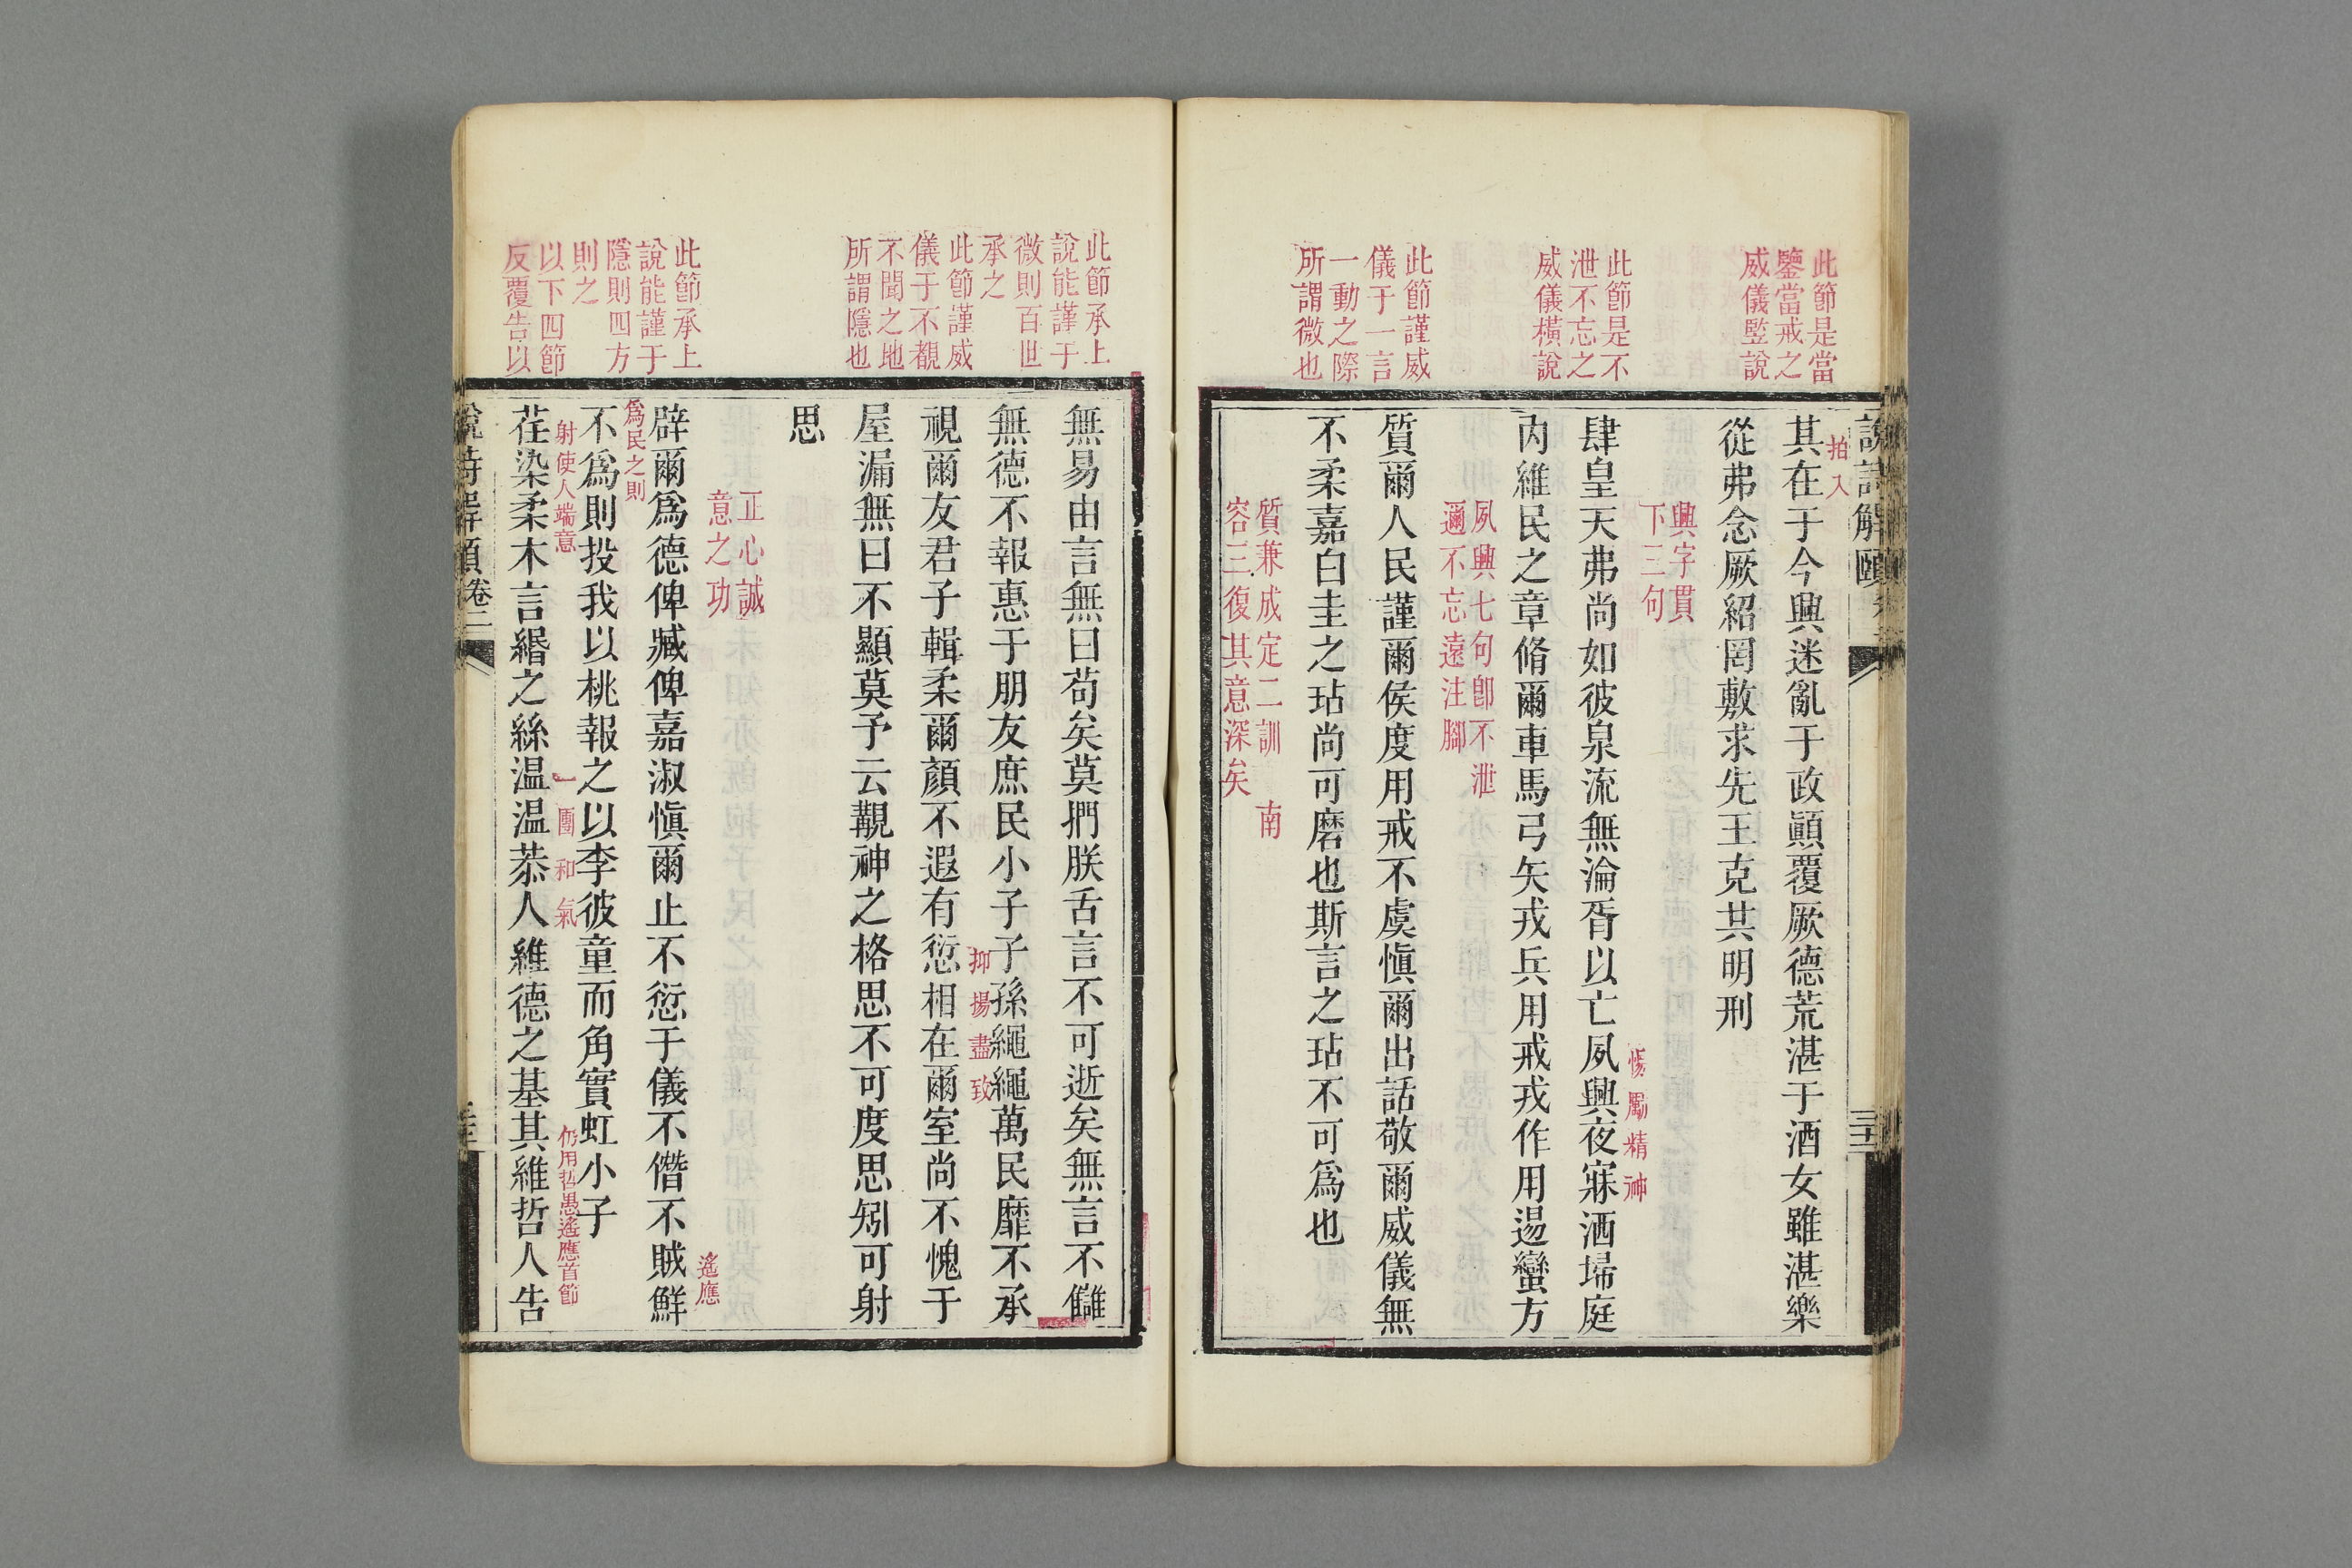 說詩解頤
此節是當
鑒當戒之
威儀監說
拍入
其在于今興迷亂于政顚覆厥德荒湛于酒女雖湛樂
從弗念厥紹罔敷求先王克共明刑
興字貫
下三句
此節是不
泄不忘之
威儀橫說
惕勵精神
肆皇天弗尚如彼泉流無淪胥以亡夙興夜寐洒埽庭
內維民之章脩爾車馬弓矢戎兵用戒戎作用逷蠻方
夙興七句卽不泄
邇不忘遠注腳
此節謹威
儀于一言
一動之際
所謂微也
質爾人民謹爾侯度用戒不虞愼爾出話敬爾威儀無
不柔嘉白圭之玷尚可磨也斯言之玷不可爲也
質兼成定二訓 南
容三復其意深矣
此節承上
說能謹于
微則百世
承之
無易由言無曰苟矣莫捫朕舌言不可逝矣無言不讎
無德不報惠于朋友庶民小子子孫繩繩萬民靡不承
抑揚盡致
此節謹威
儀于不覩
不聞之地
所謂隱也
視爾友君子輯柔爾顏不遐有愆相在爾室尚不愧于
屋漏無曰不顯莫予云覯神之格思不可度思矧可射
思
正心誠
意之功
此節承上
說能謹于
隱則四方
則之
以下四節
反覆告以
遙應
辟爾爲德俾臧俾嘉淑愼爾止不愆于儀不僭不賊鮮
爲民之則
不爲則投我以桃報之以李彼童而角實虹小子
射使人端意
一團和氣
仍用哲愚遙應首節
荏染柔木言緡之絲温温恭人維德之基其維哲人告
說詩解頤 卷二